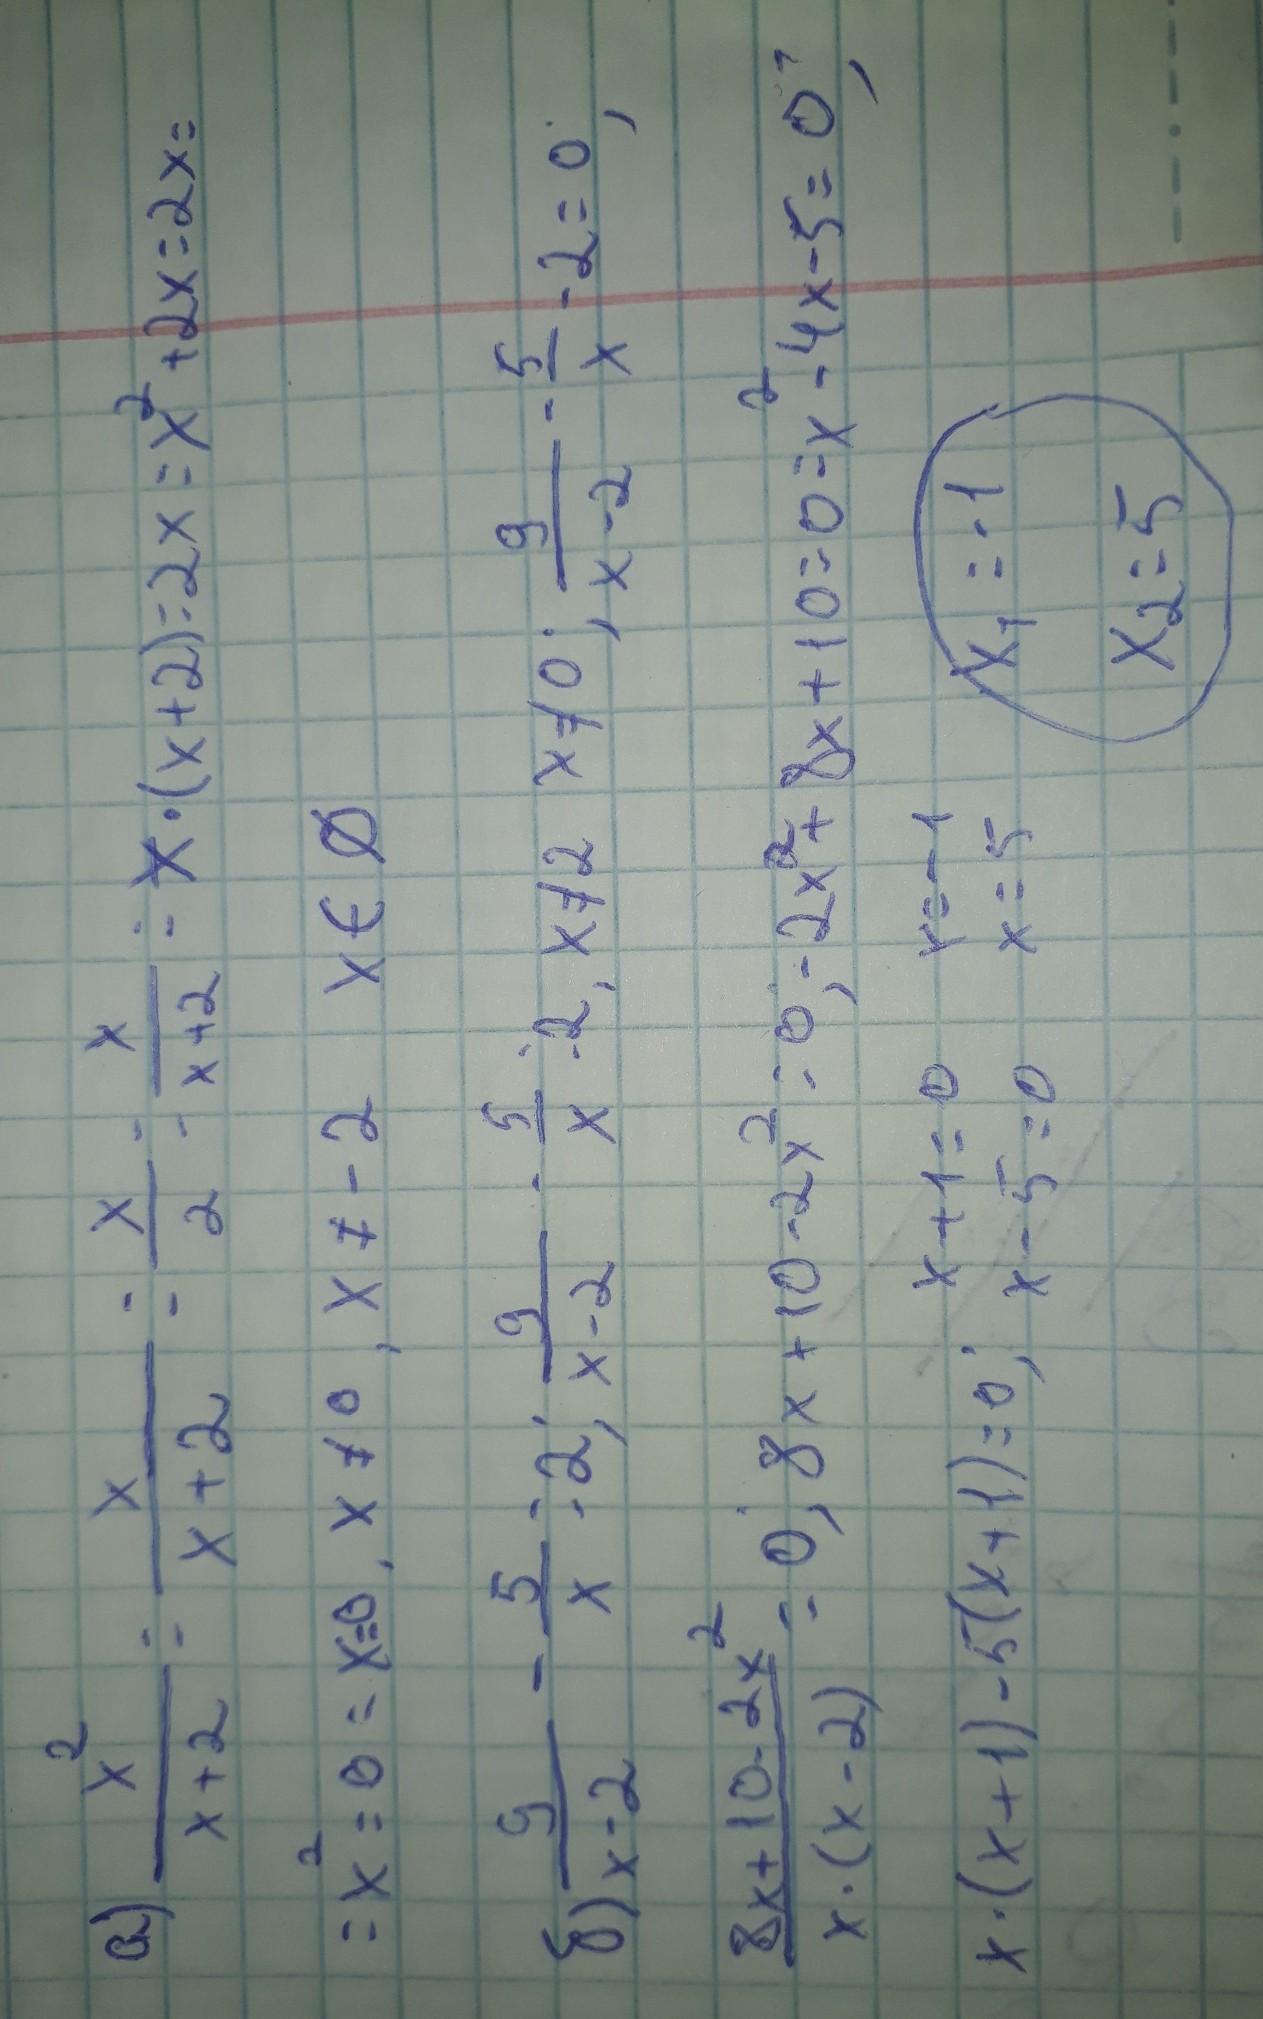 а) x²/(x+2) = x/(x+2) = x/2 = x/(x+2) = x·(x+2)=2x = x²+2x=2x=
=x²=0=x=0, x≠0, x≠-2 x∈∅
б) 9/(x-2) - 5/x = 2; 9/(x-2) - 5/x = 2, x≠2 x≠0; 9/(x-2) - 5/x - 2=0;
(8x+10-2x²)/(x·(x-2)) = 0; 8x+10-2x²=0; -2x²+8x+10=0=x²-4x-5=0;
x·(x+1)-5(x+1)=0; x+1=0 x=-1 x₁=-1
x-5=0 x=5 x₂=5